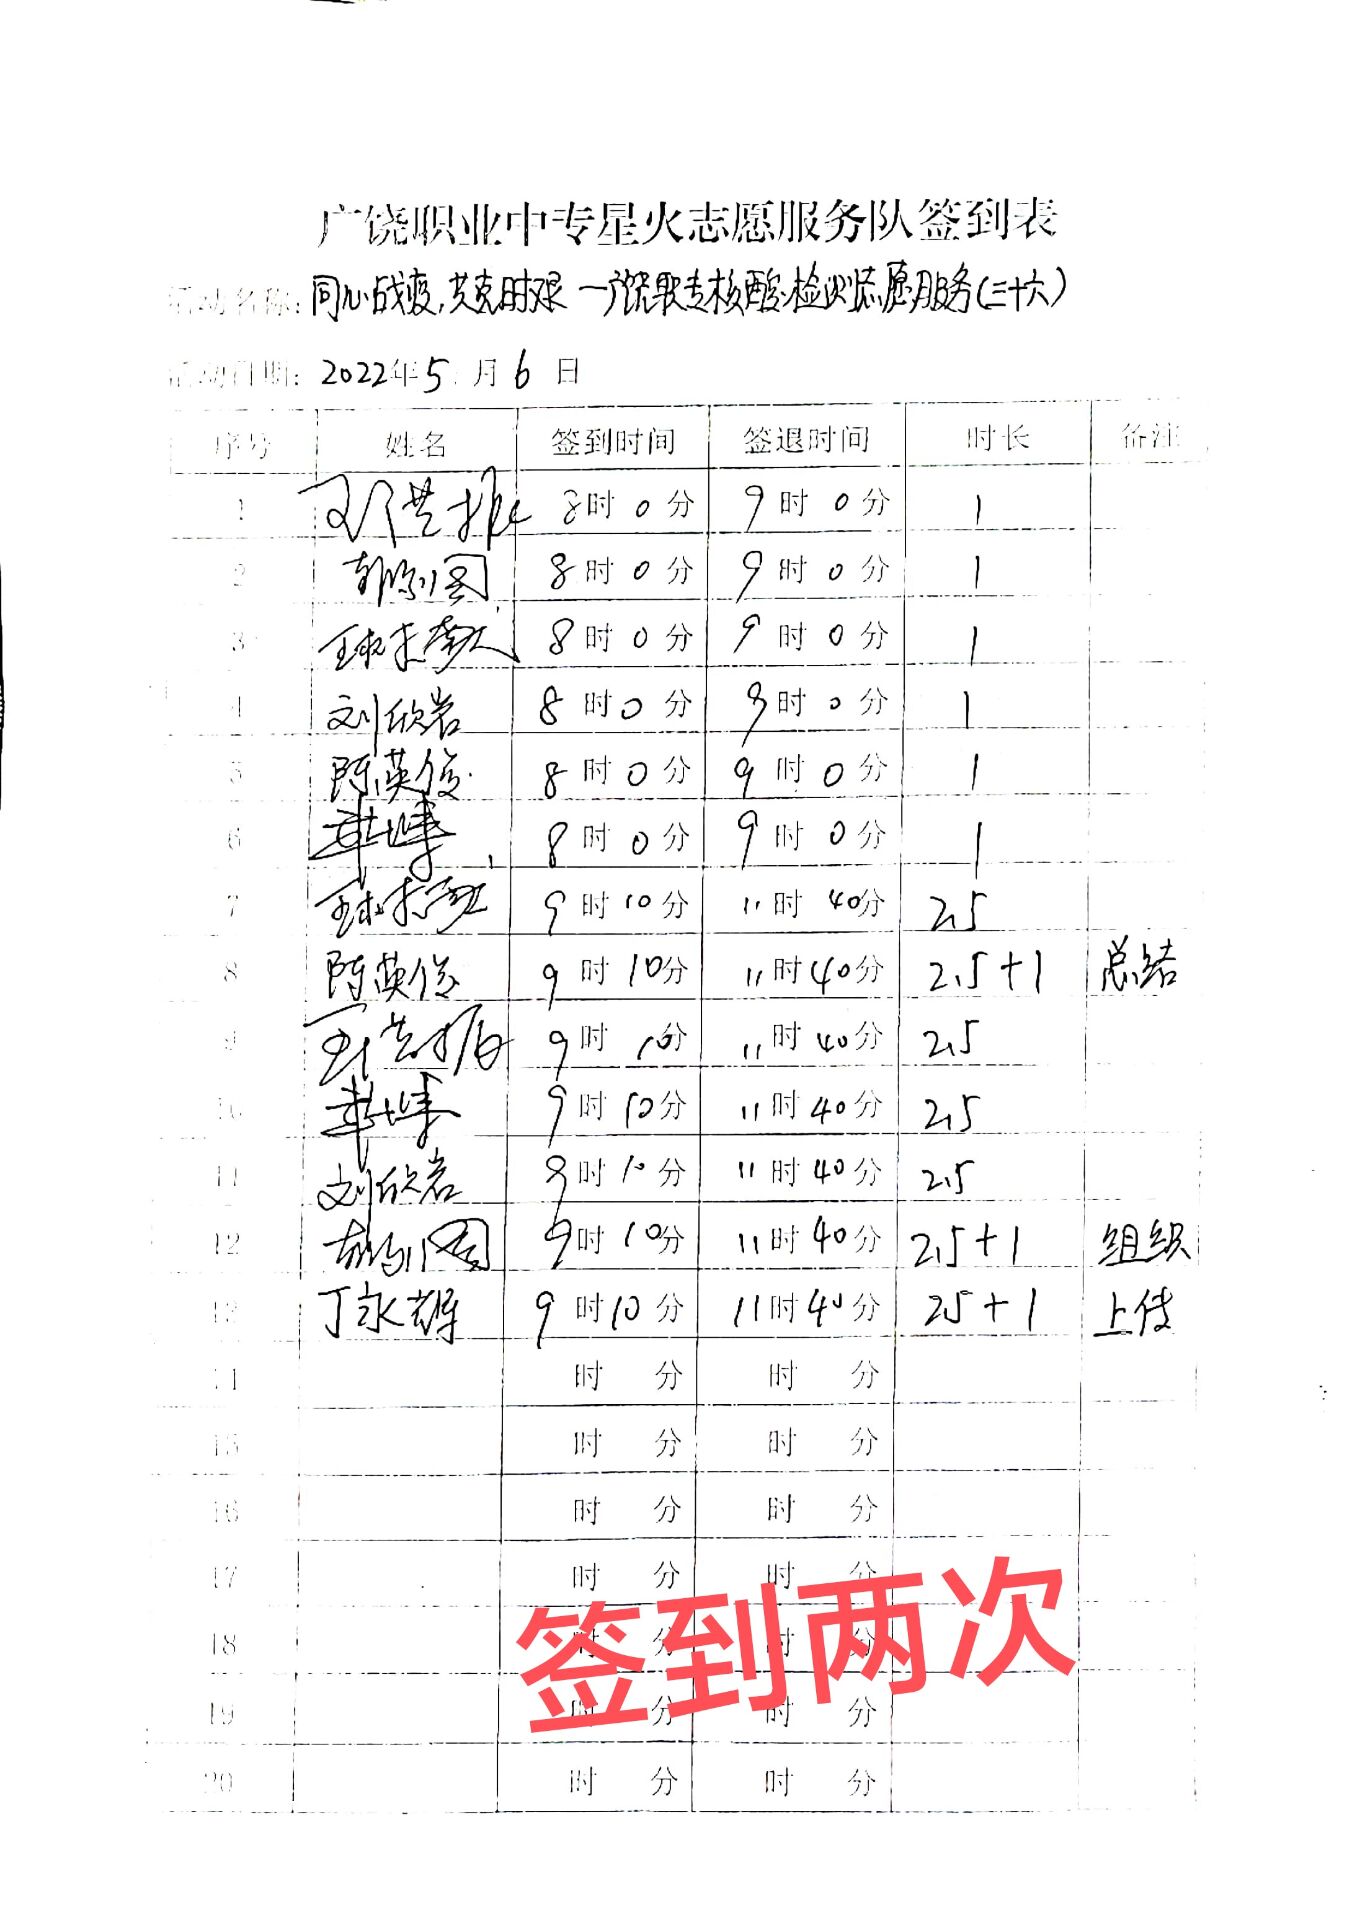 广饶职业中专星火志愿服务队签到表
活动名称: 同心战疫,共克时艰—广饶职专核酸检测志愿服务(三十六)
活动日期: 2022年5月6日
序号 姓名 签到时间 签退时间 时长 备注
1 8时0分 9时0分 1
2 8时0分 9时0分 1
3 8时0分 9时0分 1
4 刘欣岩 8时0分 9时0分 1
5 陈英俊 8时0分 9时0分 1
6 8时0分 9时0分 1
7 9时10分 11时40分 2.5
8 陈英俊 9时10分 11时40分 2.5+1 总结
9 9时10分 11时40分 2.5
10 9时10分 11时40分 2.5
11 刘欣岩 9时10分 11时40分 2.5
12 9时10分 11时40分 2.5+1 组织
13 丁永 9时10分 11时40分 2.5+1 上传
14 时 分 时 分
15 时 分 时 分
16 时 分 时 分
17 时 分 时 分
18 时 分 时 分
19 时 分 时 分
20 时 分 时 分
签到两次